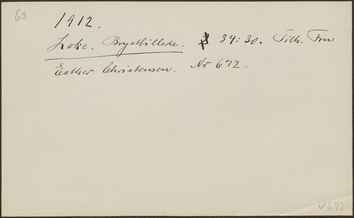 63
1912.
Loke. Brystbillede. 34:30. Tilh. Fru
Esther Christensen. Nr 672.